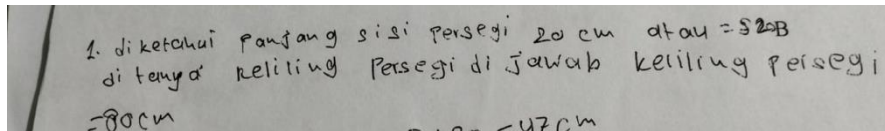 1. diketahui panjang sisi persegi 20 cm atau = S20B
di tanya keliling persegi di jawab keliling persegi
=80cm
= 47 cm